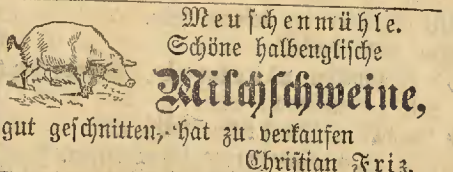 Meuschenmühle.
Schöne halbenglische
Milchschweine,
gut geschnitten, hat zu verkaufen
Christian Friz.